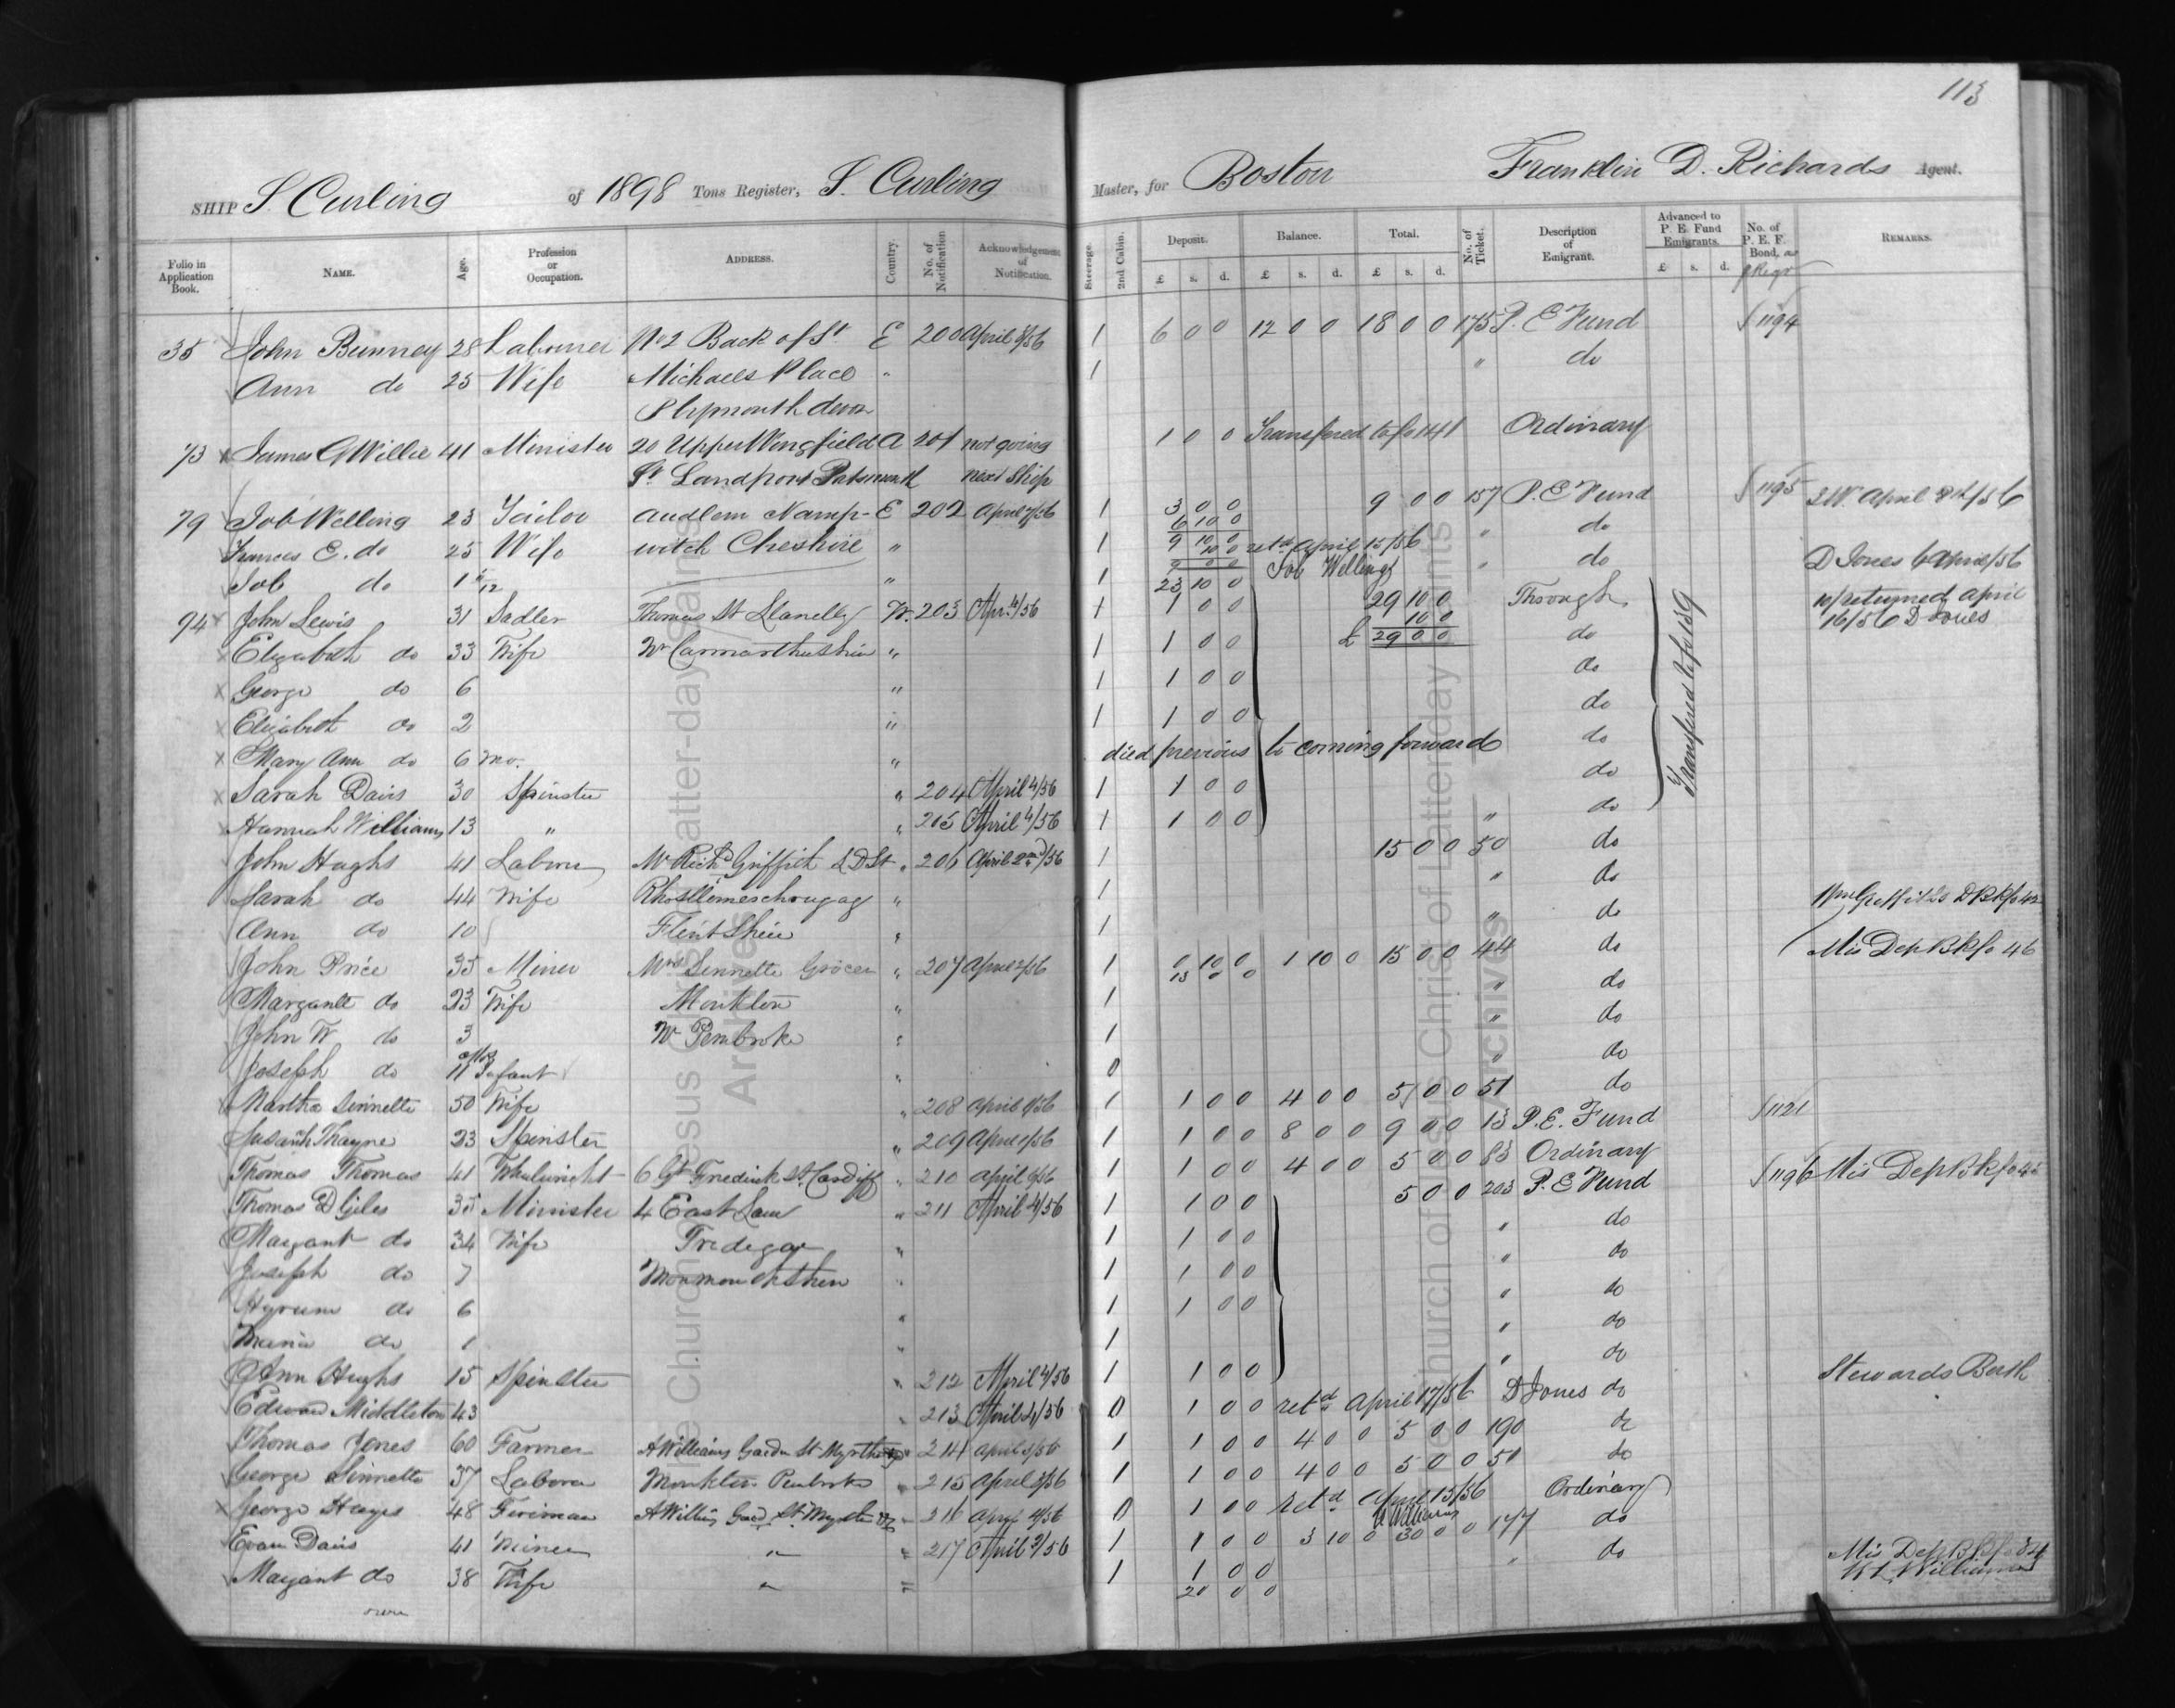 113
SHIP S. Curling of 1898 Tons Register, S. Curling Master, for Boston Franklin D. Richards Agent.
Folio in Application Book. NAME. Age. Profession or Occupation. ADDRESS. Country. No. of Notification Acknowledgement of Notification. Steerage. 2nd Cabin. Deposit. £ s. d. Balance. £ s. d. Total. £ s. d. No. of Ticket. Description of Emigrant. Advanced to P. E. Fund Emigrants. £ s. d. No. of P. E. F. Bond, REMARKS.
35 John Bunney 28 Labourer No 2 Back of St E 200 April 8/56 1 6 0 0 12 0 0 18 0 0 175 P. E Fund 1194
Ann do 25 Wife Michaels Place " 1 " do
Plymouth devon
73 James G Willie 41 Minister 20 Upper Wingfield A 201 not going 1 0 0 Transfered to fo 141 Ordinary
St Landport Portsmouth next Ship
79 Job Welling 23 Tailor Audlem Namp- E 202 April 7/56 1 3 0 0 9 0 0 157 P. E Fund 1195 April 8th/56
6 10 0
Frances E. do 25 Wife witch Cheshire " 1 9 10 0 " do
10 0 retd April 15/56
Job do 1 " 1 9 0 0 Job Welling " do D Jones 6 April/56
23 10 0
94 John Lewis 31 Sadler Thomas St Llanelly W. 203 Apr. 4/56 1 1 0 0 29 10 0 Through returned April
10 0 16/56 D Jones
Elizabeth do 33 Wife Carmarthenshire " 1 1 0 0 £ 29 0 0 do
George do 6 " 1 1 0 0 do
Elizabeth do 2 " 1 1 0 0 do
Mary Ann do 6 mo. " died previous to coming forward do
Transfered to fo 159
Sarah Davis 30 Spinster " 204 April 4/56 1 1 0 0 do
Hannah Williams 13 " " 205 April 4/56 1 1 0 0 " do
John Hughs 41 Laborer Mr Richd Griffith L D St " 206 April 2nd/56 1 15 0 0 50 do
Sarah do 44 Wife " 1 " do
Ann do 10 Flintshire " 1 " do
John Price 35 Miner Mrs Sinnette Grocer " 207 April 2/56 1 0 10 0 1 10 0 15 0 0 44 do Mis Dep Bk fo 46
13 0 0
Margarett do 23 Wife Monkton " 1 " do
John W do 3 Pembroke " 1 " do
Joseph do 11 Infant " 0 " do
Martha Sinnette 50 Wife " 208 April 1/56 1 1 0 0 4 0 0 5 0 0 51 do
Susanh Thayne 23 Spinster " 209 April 1/56 1 1 0 0 8 0 0 9 0 0 13 P. E. Fund 1121
Thomas Thomas 41 Wheelwright 6 Gt Fredrick St. Cardiff " 210 April 9/56 1 1 0 0 4 0 0 5 0 0 83 Ordinary
Thomas D Giles 35 Minister 4 East Lane " 211 April 4/56 1 1 0 0 5 0 0 203 P. E Fund 1196 Mis Dep Bk fo 45
Margant do 34 Wife Tredegar " 1 1 0 0 " do
Joseph do 7 Monmouthshire " 1 1 0 0 " do
Hyrum do 6 " 1 1 0 0 " do
Maria do 1 " 1 " do
Ann Hughs 15 Spinster " 212 April 4/56 1 1 0 0 " do
Edward Middleton 43 " 213 April 4/56 0 1 0 0 retd April 17/56 D Jones do Stewards Berth
Thomas Jones 60 Farmer A Williams Garden St Myrther " 214 April 3/56 1 1 0 0 4 0 0 5 0 0 190 do
George Sinnette 37 Laborer Monkton Pembroke " 215 April 3/56 1 1 0 0 4 0 0 5 0 0 51 do
George Hayes 48 Fireman A Willims Gard. St Myrther " 216 April 4/56 0 1 0 0 retd April 15/56 Ordinary
Williams
Evan Davis 41 Miner " " 217 April 3/56 1 1 0 0 3 10 0 30 0 0 177 do
Margant do 38 Wife " " 1 1 0 0 " do Mis Dep Bk fo 34
20 0 0 Williams